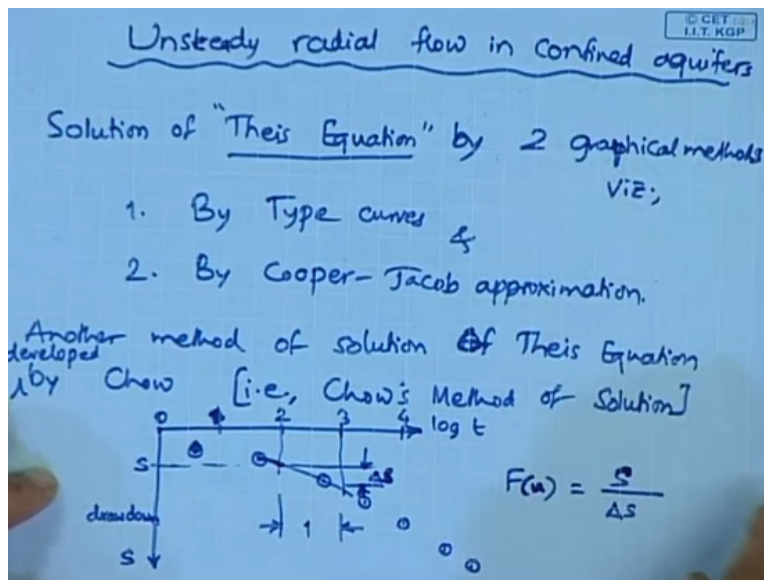 © CET
I.I.T. KGP
Unsteady radial flow in confined aquifers
Solution of "Theis Equation" by 2 graphical methods
Viz;,
1. By Type curves &
2. By Cooper-Jacob approximation.
Another method of solution Of Theis Equation
developed
by Chow [i.e, Chow's Method of Solution]
0 2 3 4 log t
S
Δs
F(u) = S / Δs
drawdown
1
S